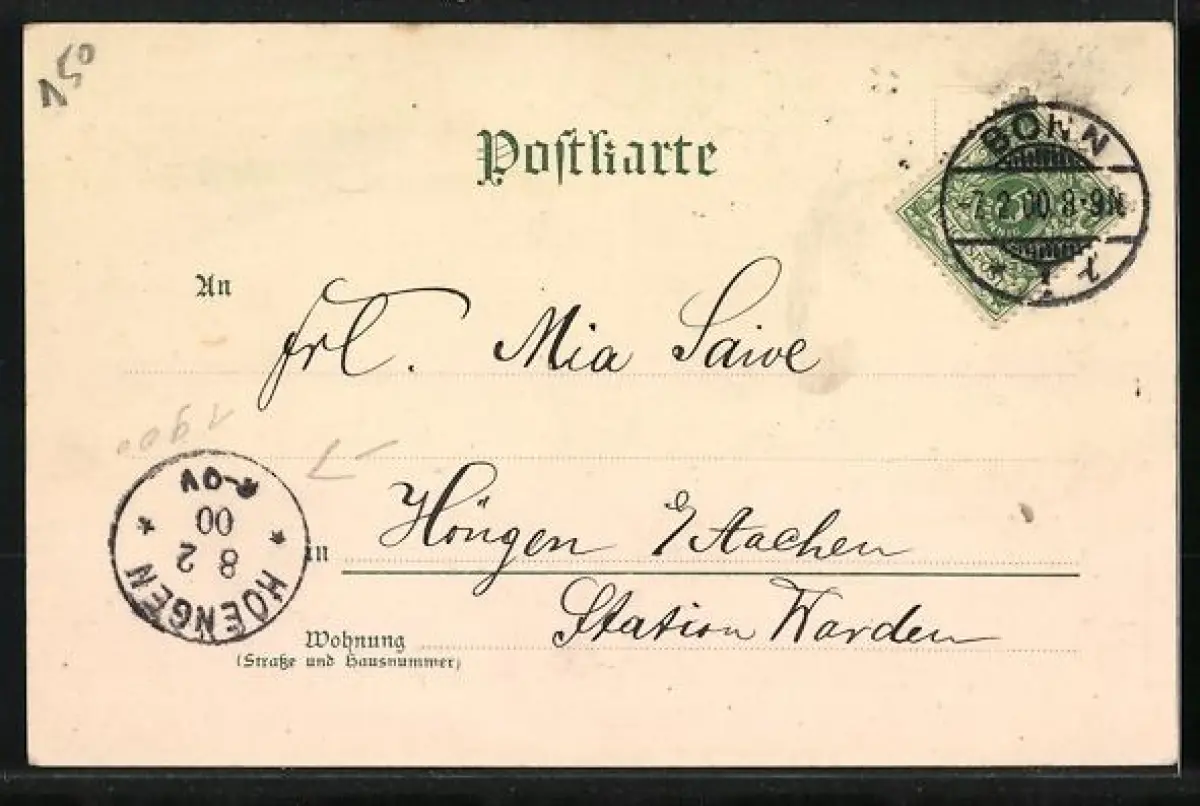 150
Postkarte
BONN
-7.2.00.8-9N
* 1 r
An
Frl. Mia Saive
1900
HOENGEN
8 2
00
Höngen b/Aachen
in
Station Warden
Wohnung
(Straße und Hausnummer)